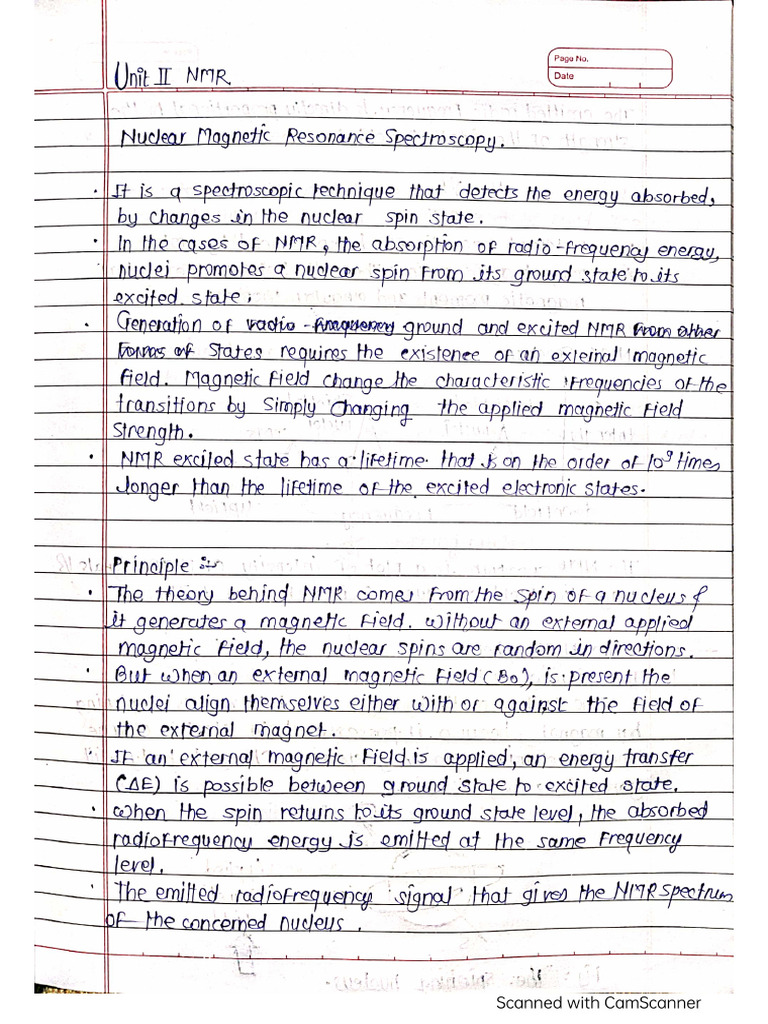 Unit II NMR
Page No.
Date
Nuclear Magnetic Resonance Spectroscopy.
• It is a spectroscopic technique that detects the energy absorbed,
by changes in the nuclear spin state.
• In the cases of NMR, the absorption of radio-frequency energy,
nuclei promotes a nuclear spin from its ground state to its
excited state.
• Generation of radio-frequency ground and excited NMR from other
forms of states requires the existence of an external magnetic
field. Magnetic field change the characteristic frequencies of the
transitions by simply changing the applied magnetic field
strength.
• NMR excited state has a lifetime that is on the order of 10⁹ times
longer than the lifetime of the excited electronic states.
Principle :-
• The theory behind NMR comes from the spin of a nucleus &
it generates a magnetic field. without an external applied
magnetic field, the nuclear spins are random in directions.
• But when an external magnetic field (B0), is present the
nuclei align themselves either with or against the field of
the external magnet.
• If an external magnetic field is applied, an energy transfer
(ΔE) is possible between ground state to excited state.
• when the spin returns to its ground state level, the absorbed
radiofrequency energy is emitted at the same frequency
level.
• The emitted radiofrequency signal that gives the NMR spectrum
of the concerned nucleus.
Scanned with CamScanner